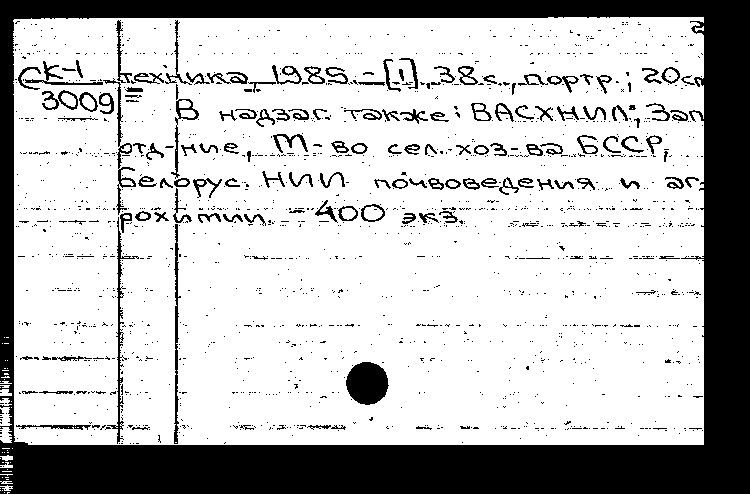 2
СК-1 техника, 1985. - [1], 38 с., портр.; 20 см
3009 = В надзаг. также: ВАСХНИЛ, Зап
отд-ние, М-во сел. хоз-ва БССР,
Белорус. НИИ почвоведения и аг-
рохимии. - 400 экз.